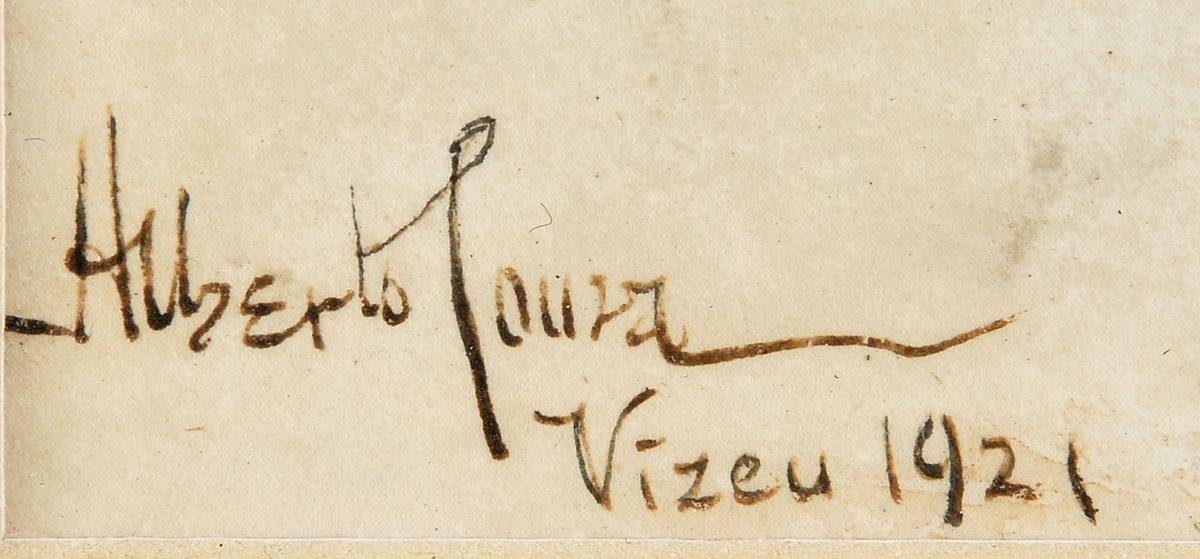 Alberto Souza
Vizeu 1921